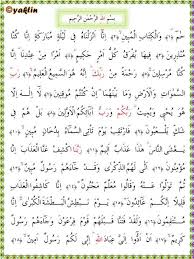 ©yaklin
بِسْمِ اللهِ الرَّحْمٰنِ الرَّحِيمِ
حم ﴿١﴾ وَالْكِتَابِ الْمُبِينِ ﴿٢﴾ إِنَّا أَنْزَلْنَاهُ فِي لَيْلَةٍ مُبَارَكَةٍ إِنَّا كُنَّا
مُنْذِرِينَ ﴿٣﴾ فِيهَا يُفْرَقُ كُلُّ أَمْرٍ حَكِيمٍ ﴿٤﴾ أَمْرًا مِنْ عِنْدِنَا إِنَّا
كُنَّا مُرْسِلِينَ ﴿٥﴾ رَحْمَةً مِنْ رَبِّكَ إِنَّهُ هُوَ السَّمِيعُ الْعَلِيمُ ﴿٦﴾ رَبِّ
السَّمٰوَاتِ وَالْأَرْضِ وَمَا بَيْنَهُمَا إِنْ كُنْتُمْ مُوقِنِينَ ﴿٧﴾ لَا إِلٰهَ
إِلَّا هُوَ يُحْيِي وَيُمِيتُ رَبُّكُمْ وَرَبُّ آبَائِكُمُ الْأَوَّلِينَ ﴿٨﴾ بَلْ هُمْ
فِي شَكٍّ يَلْعَبُونَ ﴿٩﴾ فَارْتَقِبْ يَوْمَ تَأْتِي السَّمَاءُ بِدُخَانٍ مُبِينٍ ﴿١٠﴾
يَغْشَى النَّاسَ هٰذَا عَذَابٌ أَلِيمٌ ﴿١١﴾ رَبَّنَا اكْشِفْ عَنَّا الْعَذَابَ إِنَّا
مُؤْمِنُونَ ﴿١٢﴾ أَنَّى لَهُمُ الذِّكْرَى وَقَدْ جَاءَهُمْ رَسُولٌ مُبِينٌ ﴿١٣﴾
ثُمَّ تَوَلَّوْا عَنْهُ وَقَالُوا مُعَلَّمٌ مَجْنُونٌ ﴿١٤﴾ إِنَّا كَاشِفُو الْعَذَابِ
قَلِيلًا إِنَّكُمْ عَائِدُونَ ﴿١٥﴾ يَوْمَ نَبْطِشُ الْبَطْشَةَ الْكُبْرَى إِنَّا
مُنْتَقِمُونَ ﴿١٦﴾ وَلَقَدْ فَتَنَّا قَبْلَهُمْ قَوْمَ فِرْعَوْنَ وَجَاءَهُمْ رَسُولٌ
كَرِيمٌ ﴿١٧﴾ أَنْ أَدُّوا إِلَيَّ عِبَادَ اللهِ إِنِّي لَكُمْ رَسُولٌ أَمِينٌ ﴿١٨﴾